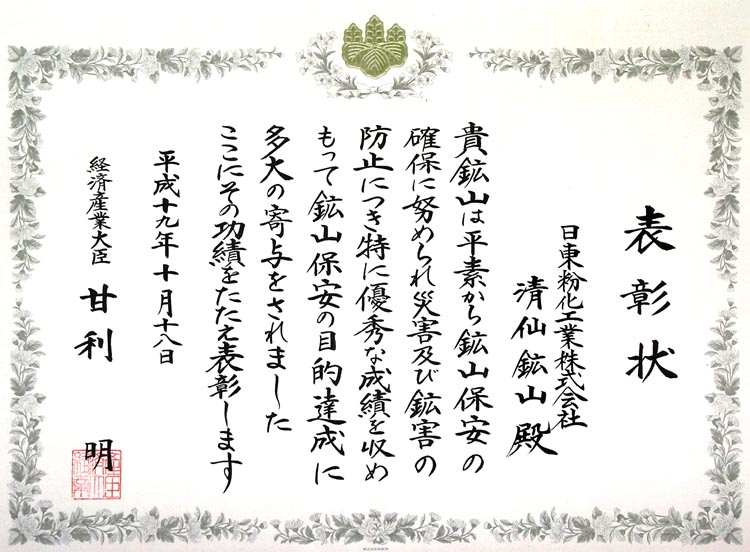 表彰状
日東粉化工業株式会社
清仙鉱山殿
貴鉱山は平素から鉱山保安の
確保に努められ災害及び鉱害の
防止につき特に優秀な成績を収め
もって鉱山保安の目的達成に
多大の寄与をされました
ここにその功績をたたえ表彰します
平成十九年十月十八日
経済産業大臣 甘利 明